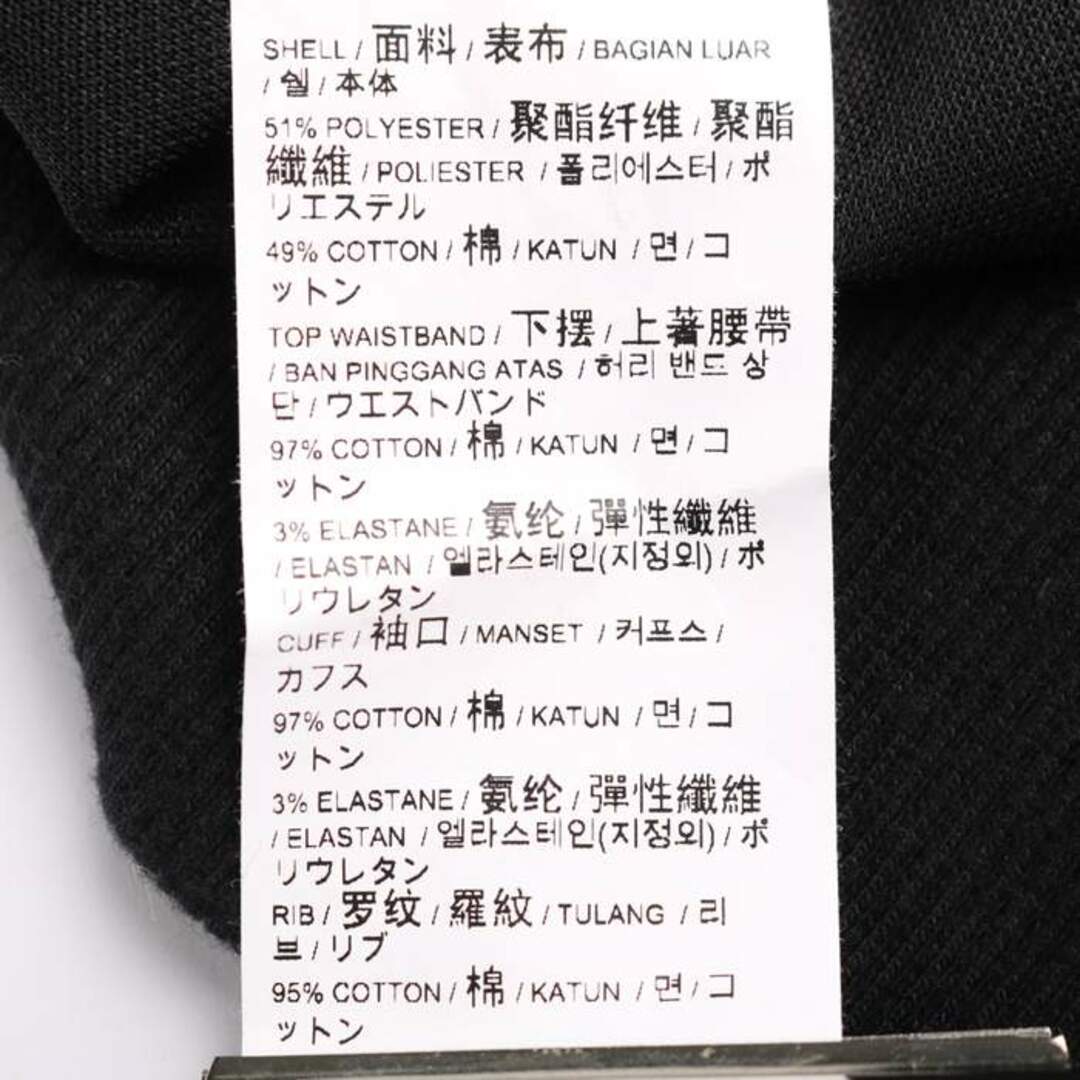 SHELL / 面料 / 表布 / BAGIAN LUAR
/ 쉘 / 本体
51% POLYESTER / 聚酯纤维 / 聚酯
纖維 / POLIESTER / 폴리에스터 / ポ
リエステル
49% COTTON / 棉 / KATUN / 면 / コ
ットン
TOP WAISTBAND / 下摆 / 上著腰帶
/ BAN PINGGANG ATAS / 허리 밴드 상
단 / ウエストバンド
97% COTTON / 棉 / KATUN / 면 / コ
ットン
3% ELASTANE / 氨纶 / 彈性纖維
/ ELASTAN / 엘라스테인(지정외) / ポ
リウレタン
CUFF / 袖口 / MANSET / 커프스 /
カフス
97% COTTON / 棉 / KATUN / 면 / コ
ットン
3% ELASTANE / 氨纶 / 彈性纖維
/ ELASTAN / 엘라스테인(지정외) / ポ
リウレタン
RIB / 罗纹 / 羅紋 / TULANG / 리
브 / リブ
95% COTTON / 棉 / KATUN / 면 / コ
ットン